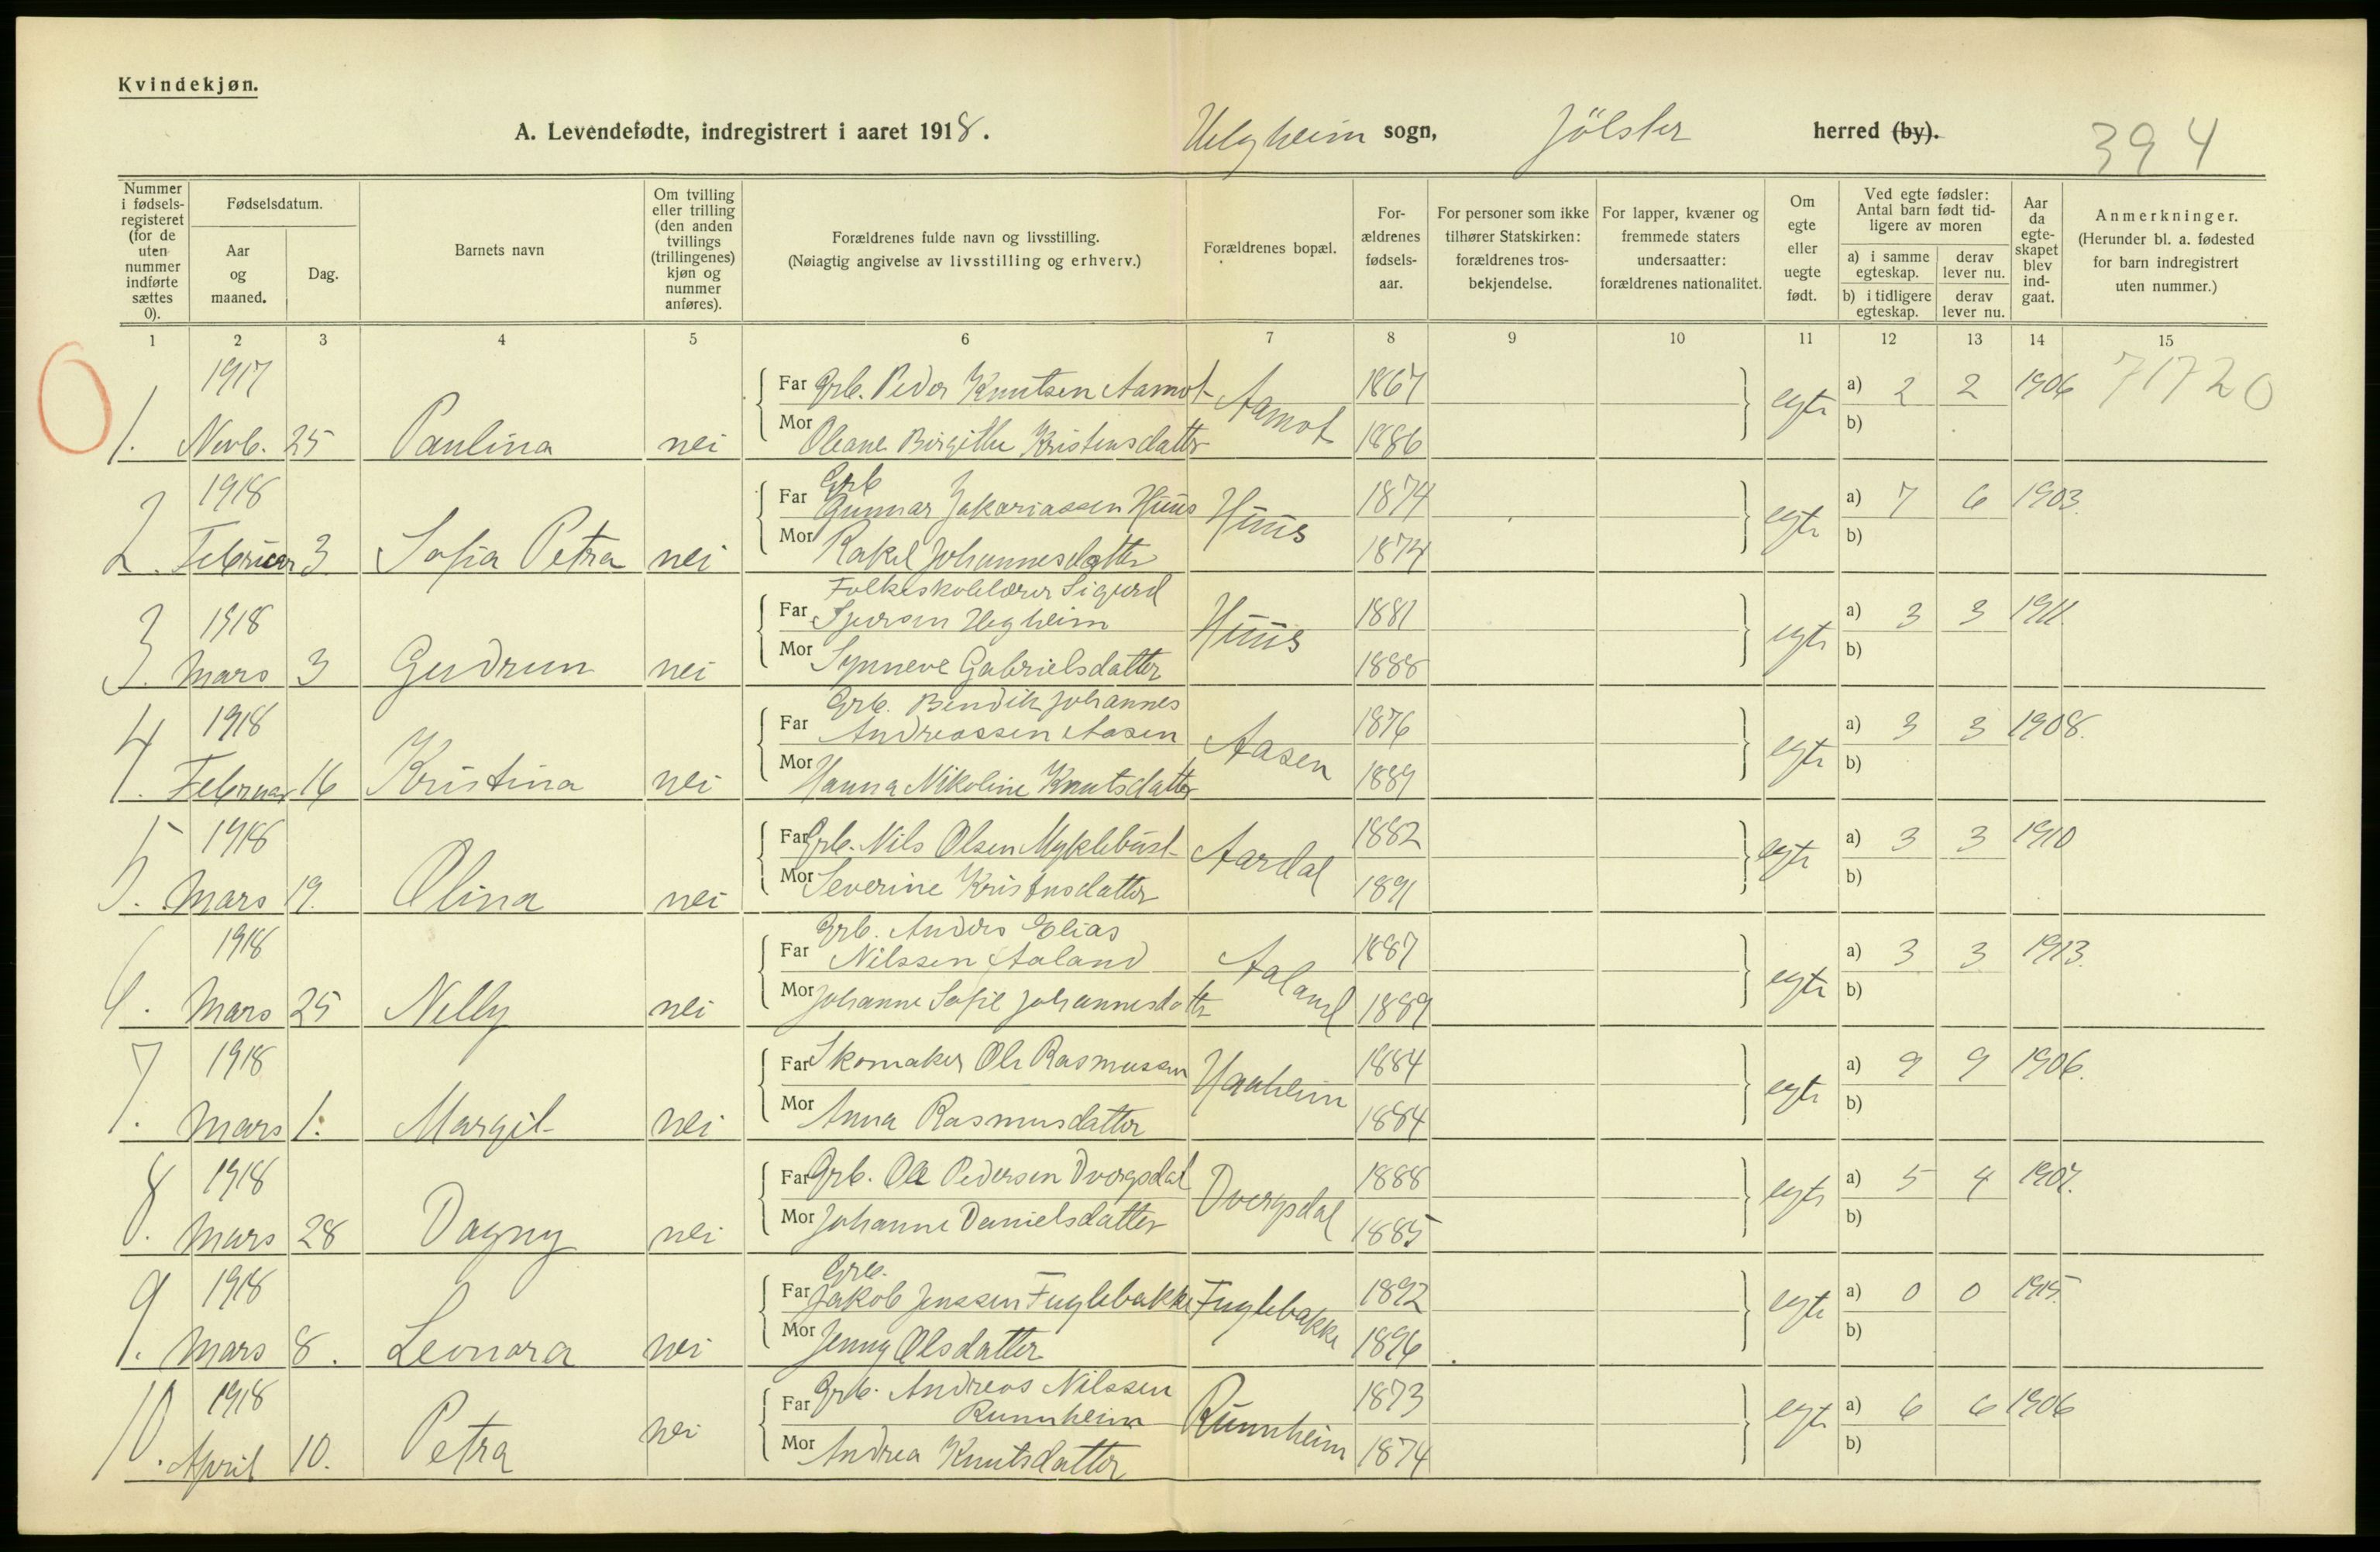 Kvindekjøn.
A. Levendefødte, indregistrert i aaret 1918. Helgheim sogn, Jölster herred (by). 394
Nummer i fødselsregisteret (for de uten nummer indførte sættes 0).
Fødselsdatum.
Aar og maaned.
Dag.
Barnets navn
Om tvilling eller trilling (den anden tvillings (trillingenes) kjøn og nummer anføres).
Forældrenes fulde navn og livsstilling.
(Nøiagtig angivelse av livsstilling og erhverv.)
Forældrenes bopæl.
Forældrenes fødselsaar.
For personer som ikke tilhører Statskirken: forældrenes trosbekjendelse.
For lapper, kvæner og fremmede staters undersaatter: forældrenes nationalitet.
Om egte eller uegte født.
Ved egte fødsler: Antal barn født tidligere av moren
a) i samme egteskap. derav lever nu.
b) i tidligere egteskap. derav lever nu.
Aar da egteskapet blev indgaat.
Anmerkninger.
(Herunder bl. a. fødested for barn indregistrert uten nummer.)
1 2 3 4 5 6 7 8 9 10 11 12 13 14 15
0
1917 Far Grb. Peder Knutsen Aamot Aamot 1867 egte a) 2 2 1906 71720
1. Novb. 25 Paulina nei Mor Oleane Birgitte Kristensdatter 1886 b)
2 1918 Far Grb Gunnar Jakariassen Huus Huus 1874 egte a) 7 6 1903.
2. Februar 3 Sofia Petra nei Mor Rakel Johannesdatter 1874 b)
Folkeskolelærer Sigurd
3 1918 Far Sjursen Helgheim Huus 1881 egte a) 3 3 1911.
3. Mars 3 Gudrun nei Mor Synneve Gabrielsdatter 1888 b)
Grb. Bendik Johannes
4 1918 Far Andreassen Aasen Aasen 1876 egte a) 3 3 1908.
4. Februar 16 Kristina nei Mor Hanna Nikoline Knutsdatter 1889 b)
5 1918 Far Grb. Nils Olsen Myklebust Aardal 1882 egte a) 3 3 1910
5. Mars 19. Olina nei Mor Severine Kristensdatter 1891 b)
Grb. Anders Elias
1918 Far Nilssen Aaland Aaland 1887 egte a) 3 3 1913.
6. Mars 25 Nelly nei Mor Johanne Sofie Johannesdatter 1889 b)
7 1918 Far Skomaker Ole Rasmussen 1884 egte a) 9 9 1906.
7. Mars 1. Margit nei Mor Anna Rasmusdatter 1884 b)
8 1918 Far Grb. Ole Pedersen Dvergsdal Dvergsdal 1888 egte a) 5 4 1907.
8. Mars 28 Dagny nei Mor Johanne Danielsdatter 1885 b)
Grb.
9 1918 Far Jakob Jenssen Fuglebakke Fuglebakke 1892 egte a) 0 0 1915.
9. Mars 8. Leonora nei Mor Jenny Olsdatter 1896 b)
Grb. Andreas Nilssen
10 1918 Far Runnheim Runnheim 1873 egte a) 6 6 1906
10. April 10. Petra nei Mor Andrea Knutsdatter 1874 b)